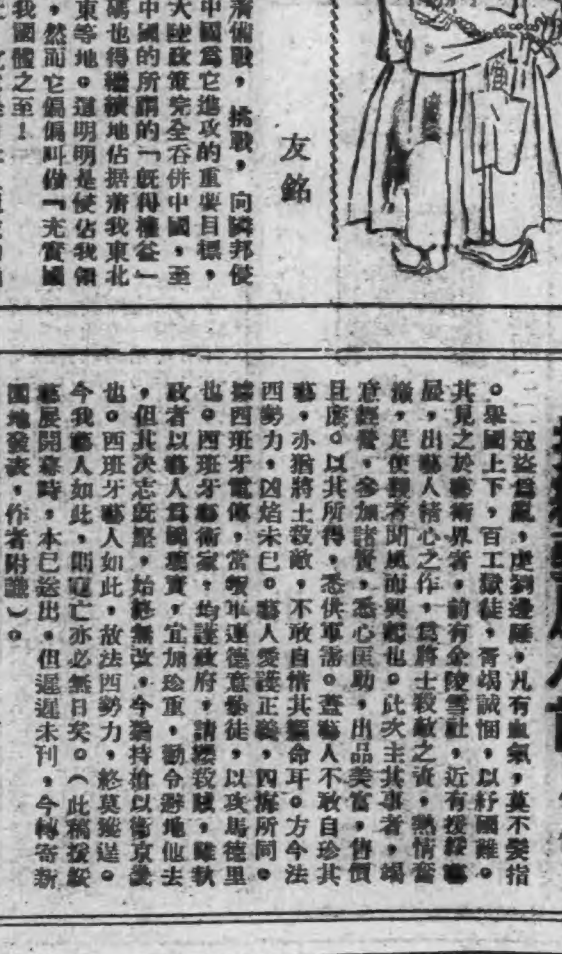 友銘
備戰，挑戰，向隣邦侵
中國爲它進攻的重要目標，
大陸政策完全吞併中國，至
中國的所謂的「旣得權益」
也得繼續地佔据着我東北
東等地。這明明是侵佔我領
，然而它偏偏叫做「充實國
我國體之至！
寇盜爲亂，虔劉邊陲，凡有血氣，莫不髮指
。舉國上下，百工獄徒，胥竭誠悃，以紓國難。
其見之於藝術界者，前有金陵雪社，近有援綏藝
展，出藝人精心之作，爲將士殺敵之資，熱情奮
激，足使觀者聞風而興起也。此次主其事者，竭
意經營，參加諸賢，悉心匡助，出品美富，售價
且廉。以其所得，悉供軍需。蓋藝人不敢自珍其
藝，亦猶將士殺敵，不敢自惜其軀命耳。方今法
西勢力，凶焰未已。藝人愛護正義，四海所同。
據西班牙電傳，當叛軍連德意暴徒，以攻馬德里
也。西班牙藝術家，均護政府，請纓殺賊，雖執
政者以藝人爲國瓌寶，宜加珍重，勸令避地他去
，但其決志旣堅，始終無改，今猶持槍以衞京畿
也。西班牙藝人如此，故法西勢力，終莫獲逞。
今我藝人如此，則寇亡亦必無日矣。（此稿援綏
藝展開幕時，本已送出。但遲遲未刊，今轉寄新
園地發表，作者附識）。